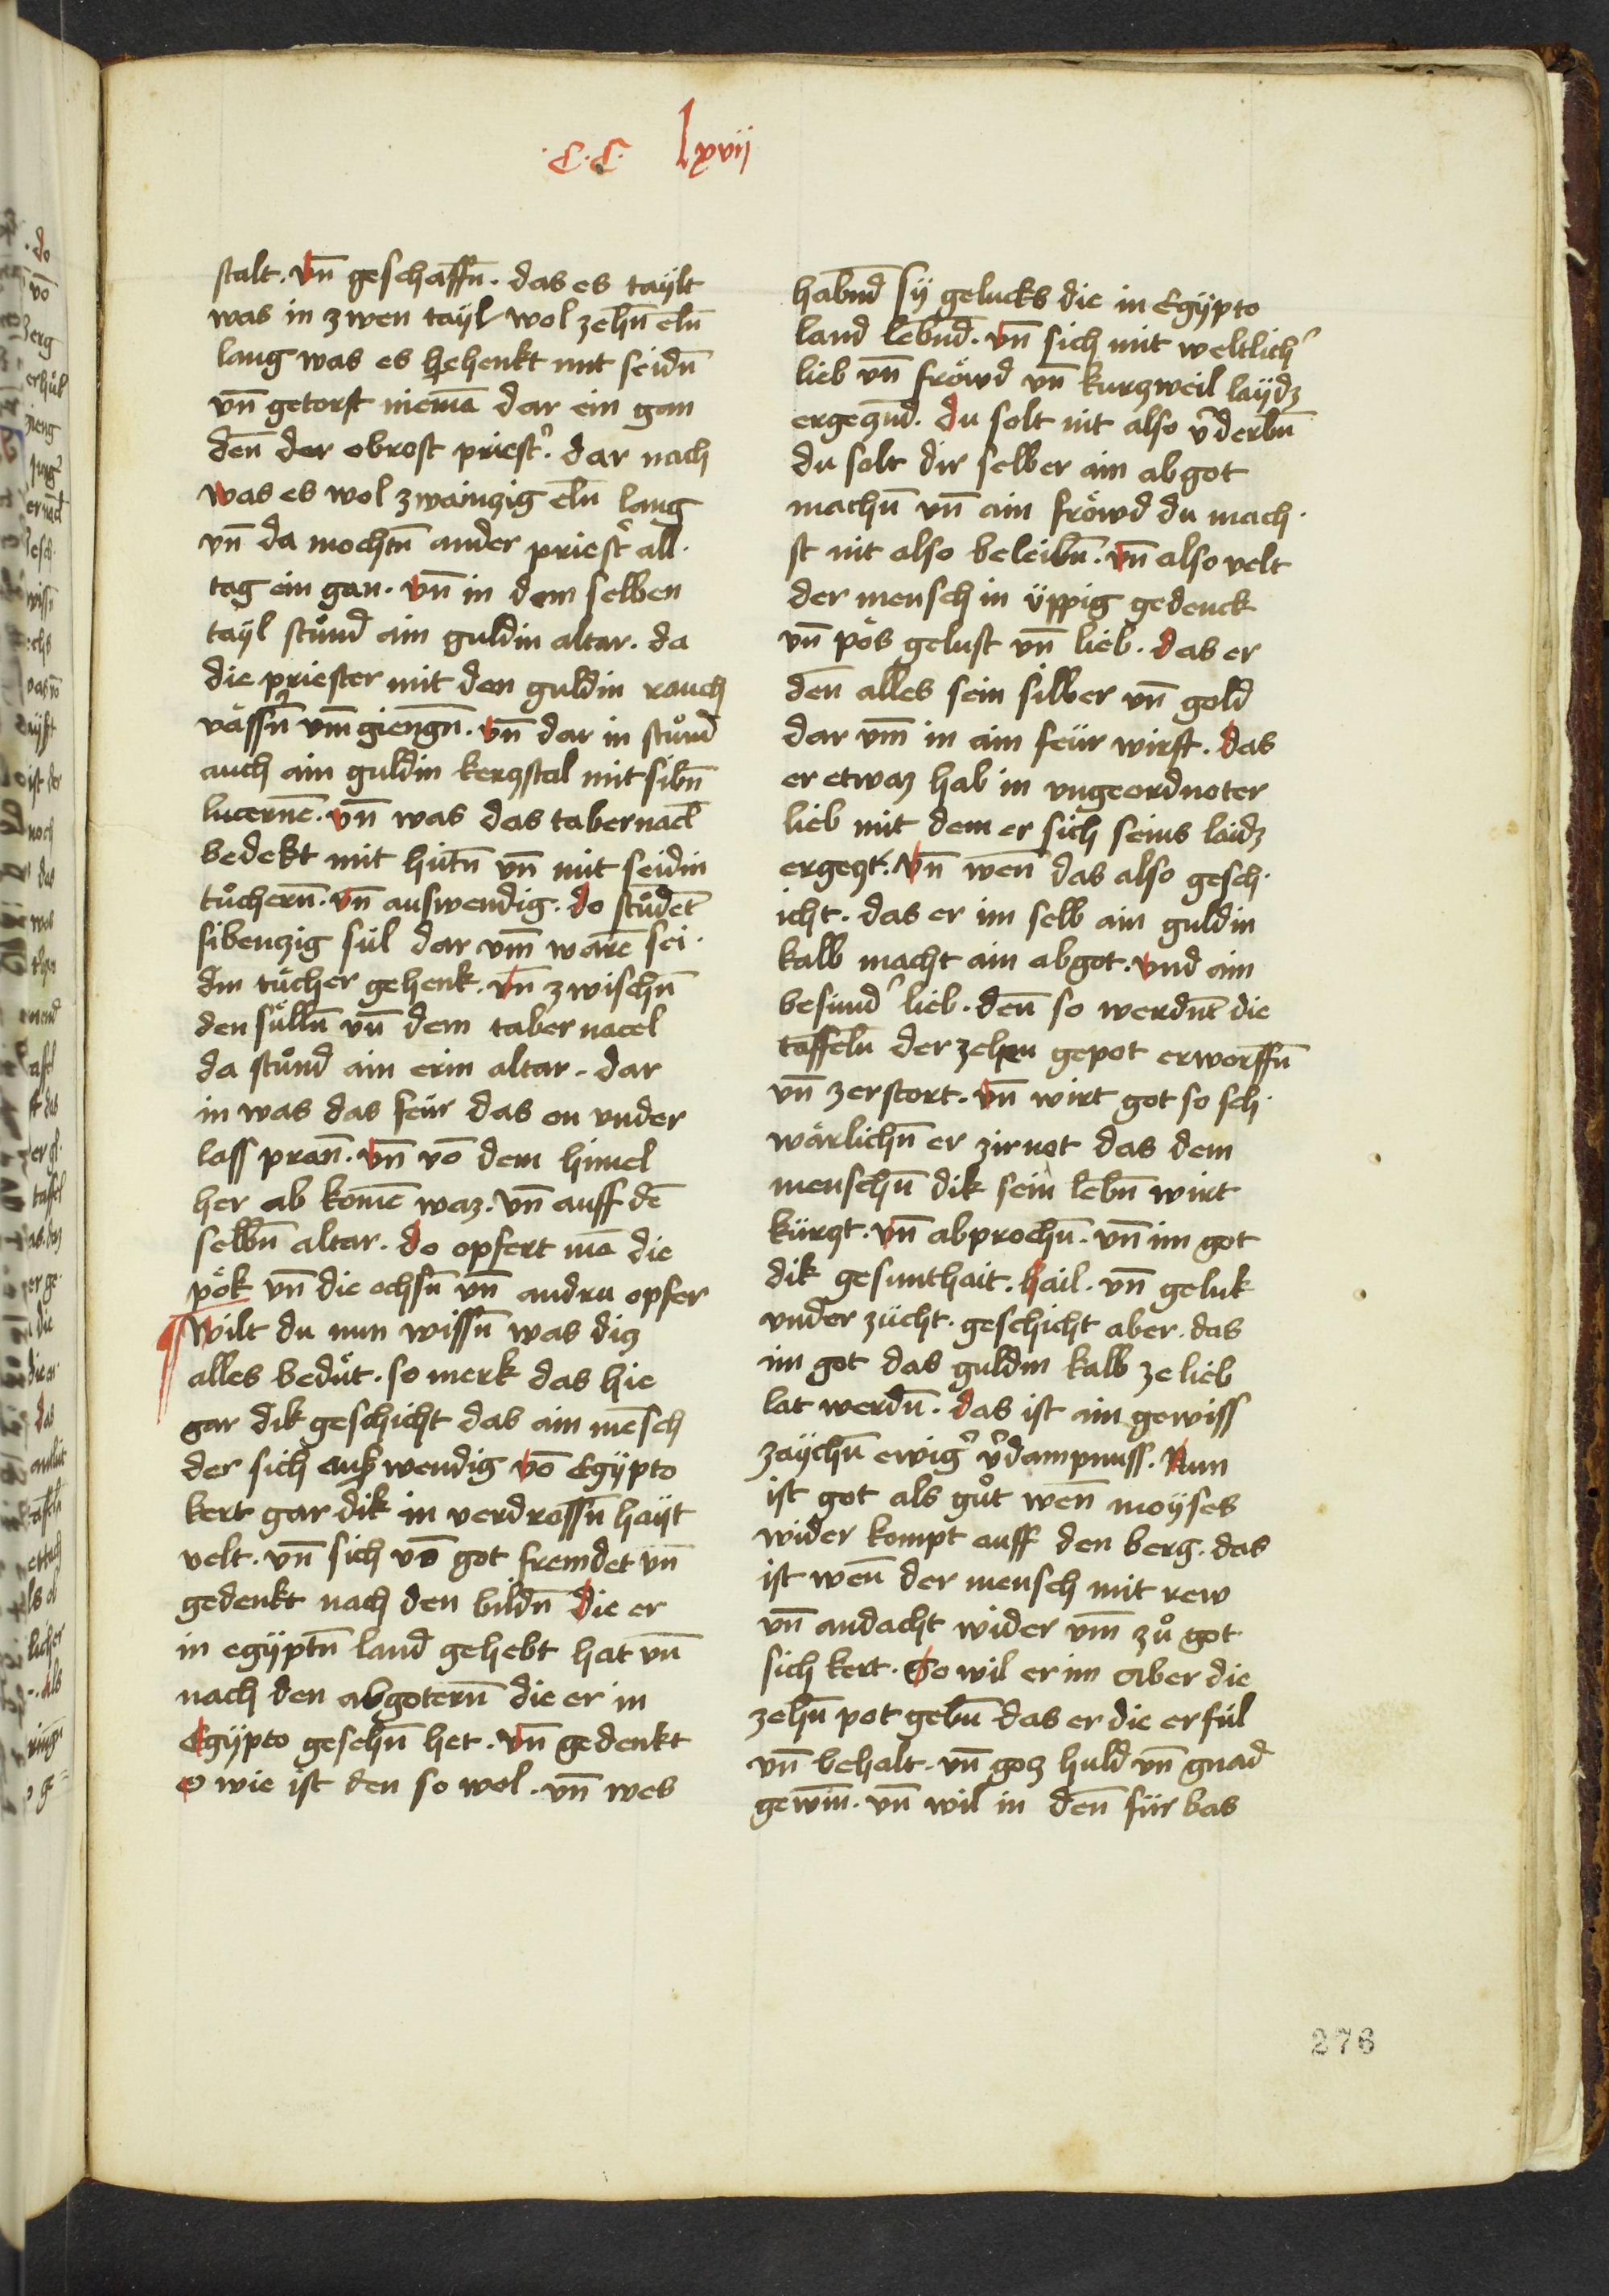 ·C·C· lxvii
stalt. vn̄ geschaffn̄. das es taÿlt
was in zwen taÿl wol zehn̄ eln̄
lang was es behenkt mit seidn̄
vn̄ getorst niemā dar ein gan
den̄ der obrost priest᷑. dar nach
was es wol zwainzig eln̄ lang
vn̄ da mochtn̄ ander priest᷑ all
tag ein gan. vn̄ in dem selben
taÿl stůnd ain guldin altar. da
die priester mit den guldin rauch
vässn̄ vm̄ giengn̄. vn̄ dar in stůnd
auch ain guldin kerzstal mit sibn̄
lucernē. vn̄ was das tabernacl̄
bedekt mit hütn̄ vn̄ mit seidin
tůchern̄. vn̄ auswendig. do stůndet̄
sibenzig sül dar vm̄ warē sei·
din tücher gehenk. vn̄ zwischn̄
den sülln̄ vn̄ dem tabernacel
da stůnd ain erin altar. dar
in was das feür das on vnder
lass pran̄. vn̄ vō dem himel
her ab komē waz. vn̄ auff dē
selbn̄ altar. do opfert mā die
pök vn̄ die ochsn̄ vn̄ andru opfer
¶ Wilt du nun wissn̄ was diz
alles bedüt. so merk das hie
gar dik geschicht das ain mēsch
der sich auswendig vō Egÿpto
kert gar dik in verdrossn̄ haÿt
velt. vn̄ sich vō got fremdet vn̄
gedenkt nach den bildn̄ die er
in egÿptn̄ land gehebt hat vn̄
nach den abgotern̄ die er in
Egÿpto gesehn̄ het. vn̄ gedenkt
O wie ist den so wol. vn̄ wes
habnd̄ sÿ gelucks die in Egÿpto
land lebnd̄. vn̄ sich mit weltlich᷑
lieb vn̄ fröwd vn̄ kurzweil laÿdz
ergeznd̄. du solt nit also v᷑derbn̄
du solt dir selber ain abgot
machn̄ vn̄ ain fröwd du mach·
st nit also beleibn̄. vn̄ also velt
der mensch in üppig gedenck
vn̄ pös gelust vn̄ lieb. das er
den̄ alles sein silber vn̄ gold
dar vm̄ in ain feür wirft. das
er etwaz hab in vngeordnoter
lieb mit dem er sich seins laidz
ergezt. vn̄ wen̄ das also gesch·
icht. das er im selb ain guldin
kalb macht ain abgot. vnd ain
besund᷑ lieb. den̄ so werdnt̄ die
taffeln̄ der zehen gepot erworffn̄
vn̄ zerstort. vn̄ wirt got so sch·
wärlichn̄ er zürnot das dem
menschn̄ dik sein lebn̄ wirt
kürzt. vn̄ abprochn̄. vn̄ im got
dik gesunthait. hail. vn̄ geluk
vnder zücht. geschicht aber. das
im got das guldin kalb ze lieb
lat werdn̄. das ist ain gewiss
zaÿchn̄ ewig᷑ v᷑dampnuss. Nun
ist got als gůt wen̄ moÿses
wider kompt auff den berg. das
ist wen̄ der mensch mit rew
vn̄ andacht wider vm̄ zů got
sich kert. So wil er im aber die
zehn̄ pot gebn̄ das er die erfül
vn̄ behalt. vn̄ goz huld vn̄ gnad
gewin̄. vn̄ wil in den̄ für bas
276